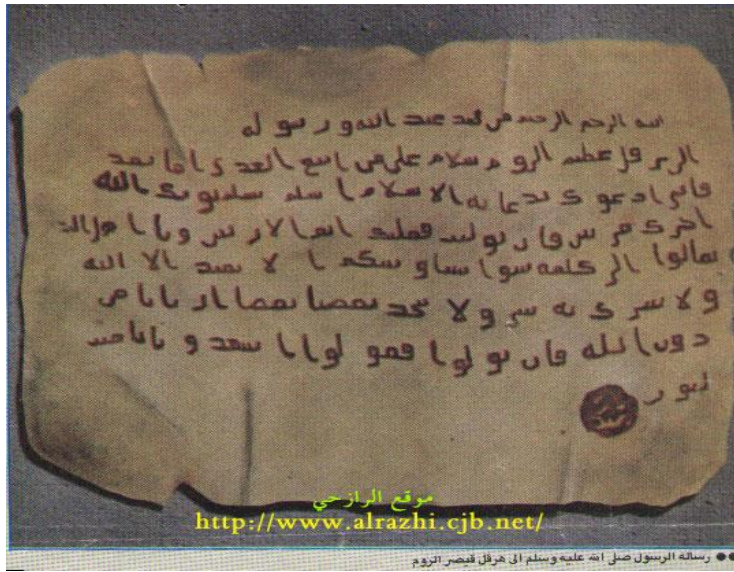 الله الرحمن الرحيم من محمد عبد الله ورسوله
الى هرقل عظيم الروم سلام على من اتبع الهدى اما بعد
فانى ادعوك بدعاية الاسلام اسلم تسلم يوتك الله
اجرك مرتين فان توليت فعليك اثم الاريسين ويا اهل
تعالوا الى كلمة سوا بيننا وبينكم ا لا نعبد الا الله
ولا نشرك به شي ولا يتخذ بعضنا بعضا اربابا من
دون الله فان تولوا فقولوا اشهدوا بانا
موقع الرازحي
http://www.alrazhi.cjb.net/
رسالة الرسول صلى الله عليه وسلم الى هرقل قيصر الروم